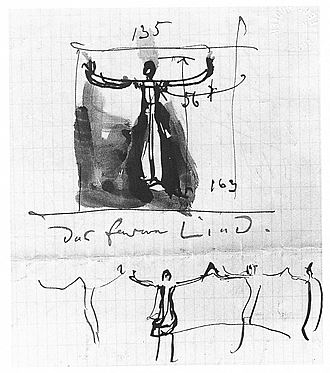 135
56
163
Das ferne Lied.